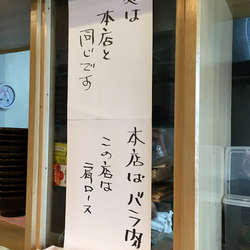 は
本店と
同じです
本店はバラ肉
この店は
肩ロース